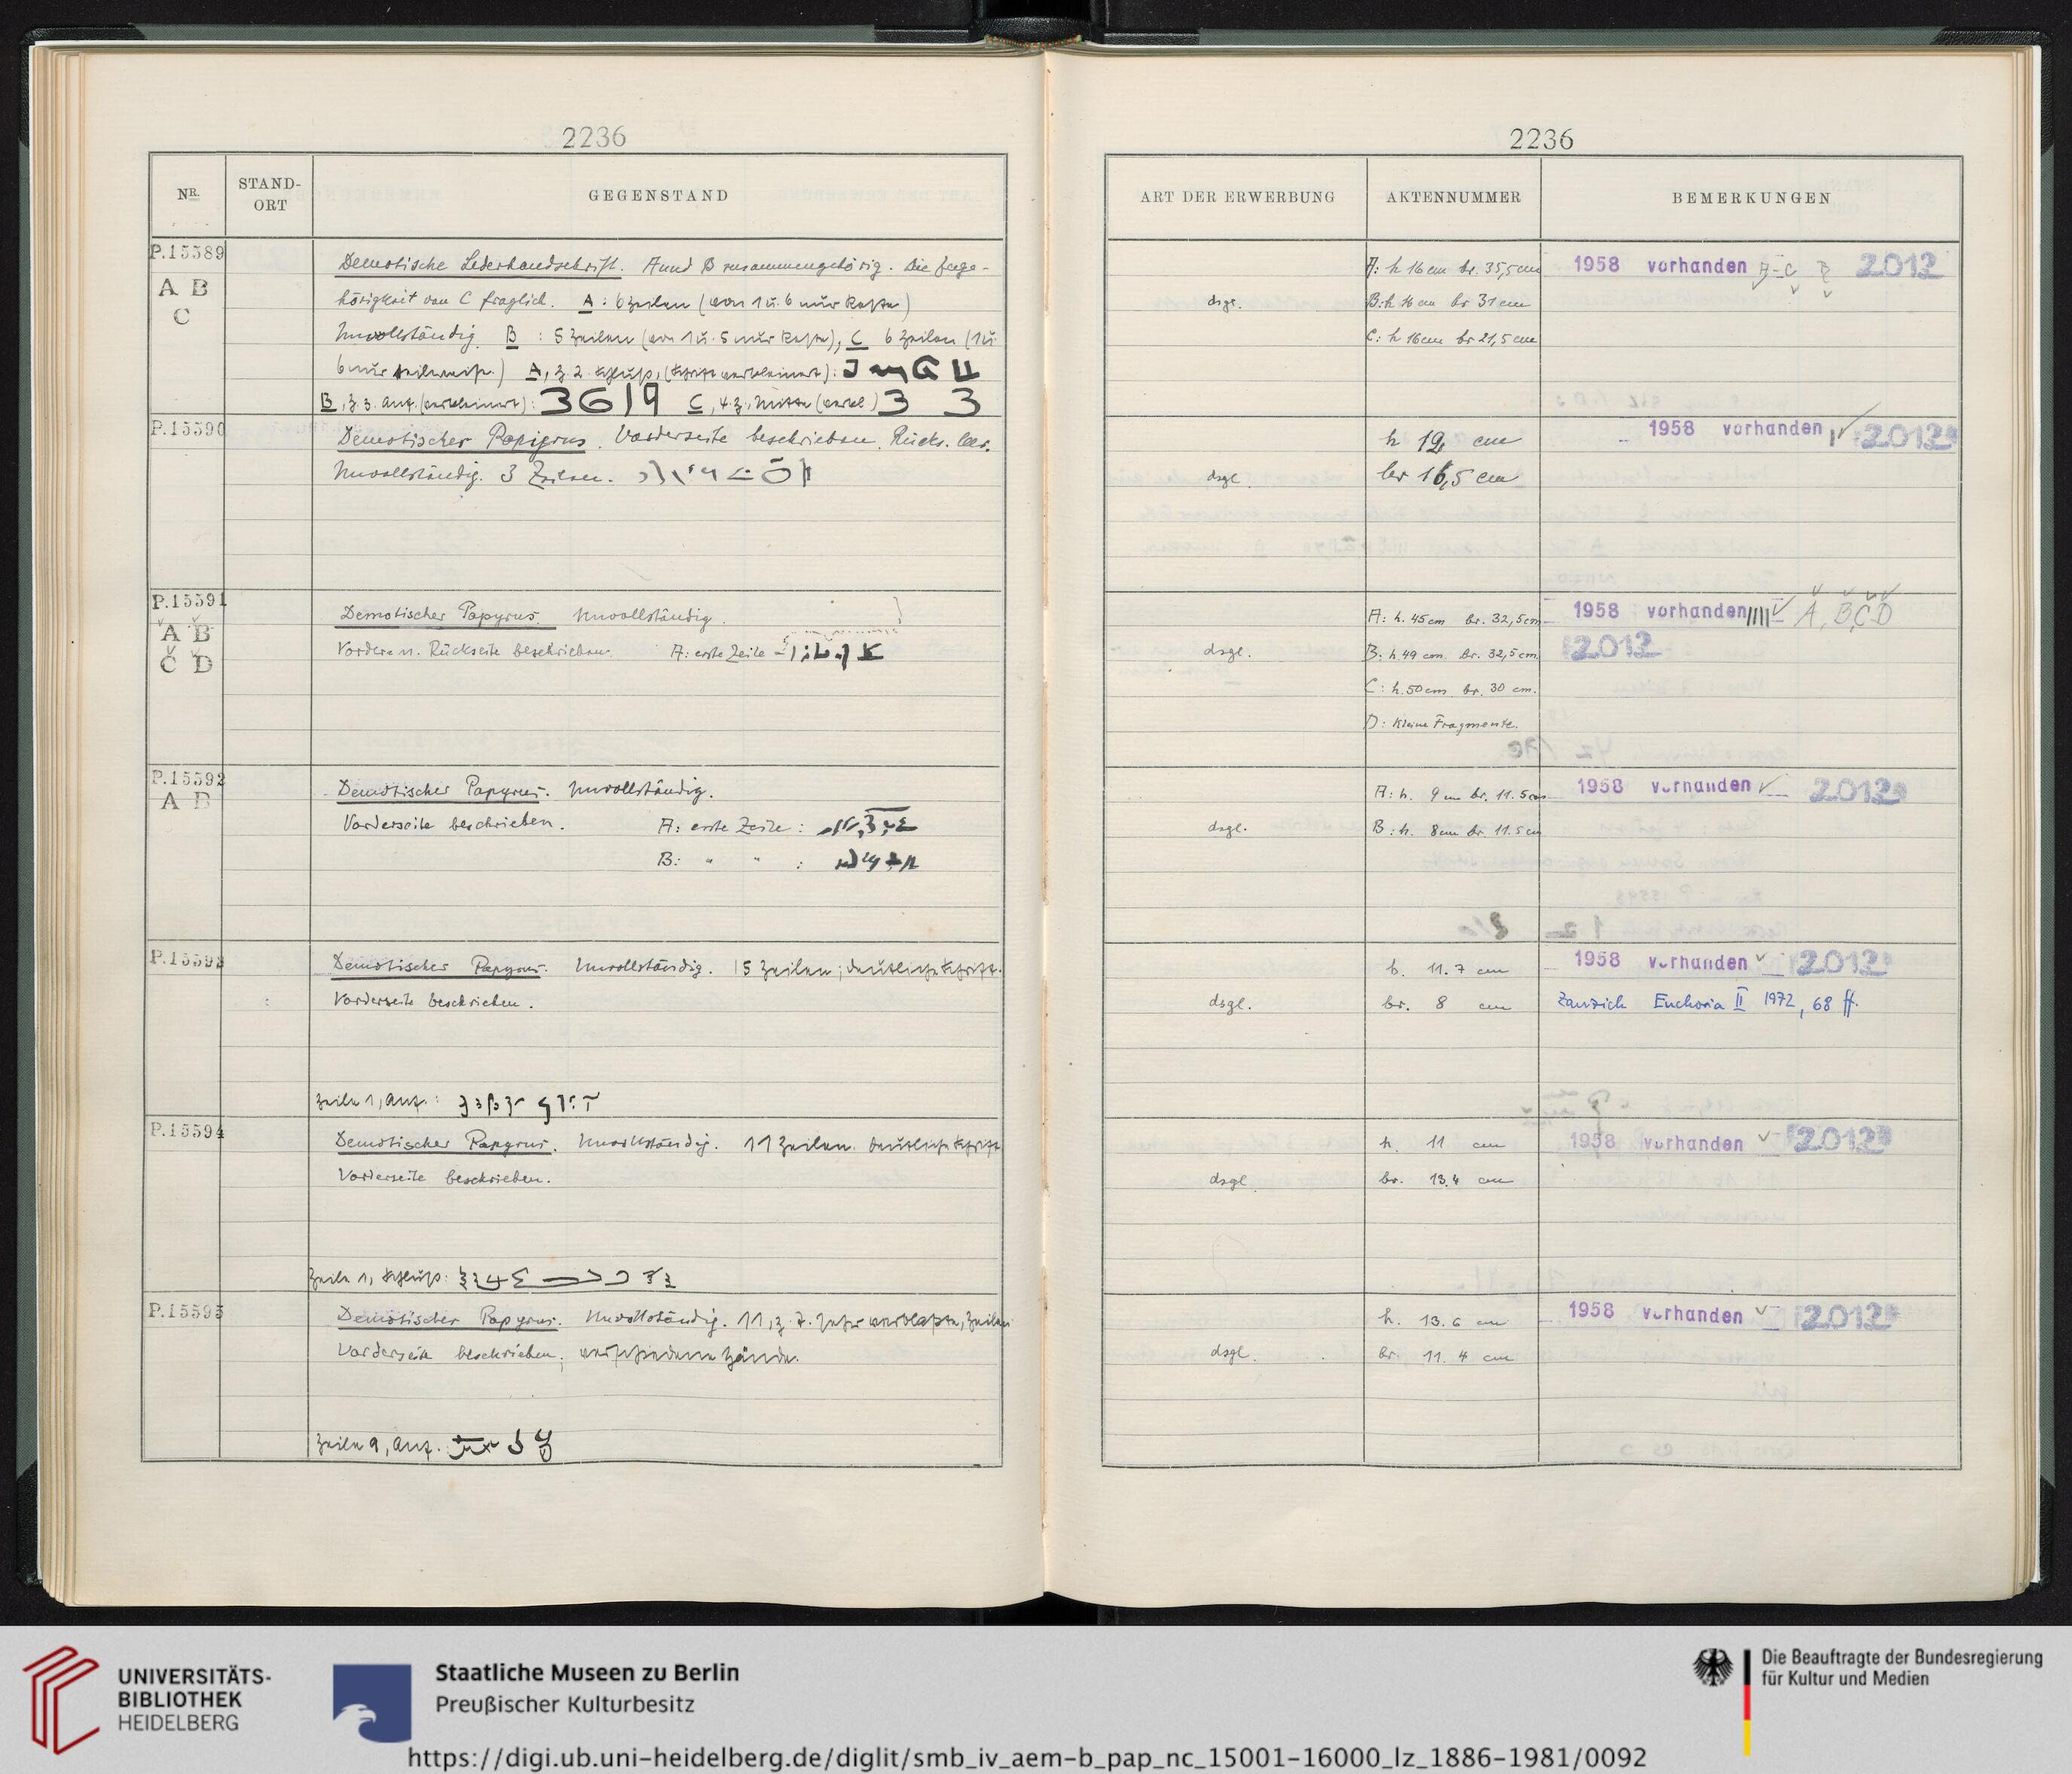 2236
NR.
STAND-
ORT
GEGENSTAND
P.15589
A B
C
Demotische Lederhandschrift. A und B zusammengehörig. Die Zuge-
hörigkeit von C fraglich. A: 6 Zeilen (von 1 u. 6 nur Reste)
Unvollständig. B: 5 Zeilen (von 1 u. 5 nur Reste), C 6 Zeilen (1 u.
6 nur teilweise.) A, Z. 2. Schluß, (Schrift verkleinert):
B, Z. 3. Anf. (verkleinert): C, 4. Z., Mitte (verkl)
P.15590
Demotischer Papyrus. Vorderseite beschrieben. Rücks. leer.
Unvollständig. 3 Zeilen.
P.15591
A B
C D
Demotischer Papyrus. Unvollständig.
Vorder u. Rückseite beschrieben. A: erste Zeile
P.15592
A B
Demotischer Papyrus. Unvollständig.
Vorderseite beschrieben. A: erste Zeile:
B: " " :
P.15593
Demotischer Papyrus. Unvollständig. 15 Zeilen; deutliche Schrift.
Vorderseite beschrieben.
Zeile 1, Anf.:
P.15594
Demotischer Papyrus. Unvollständig. 11 Zeilen. deutliche Schrift
Vorderseite beschrieben.
Zeile 1, Schluß:
P.15595
Demotischer Papyrus. Unvollständig. 11, z. T. sehr verblaßte, Zeilen
Vorderseite beschrieben; verschiedene Hände.
Zeile 9, Anf.
2236
ART DER ERWERBUNG
AKTENNUMMER
BEMERKUNGEN
A: h 16 cm br. 35,5 cm 1958 vorhanden A-C 2012
dsgl. B: h 16 cm br 31 cm
C: h 16 cm br 21,5 cm
h 19, cm 1958 vorhanden 2012
dsgl. br 16,5 cm
A: h. 45 cm br. 32,5 cm 1958 vorhanden A, B, C-D
dsgl. B: h. 49 cm. br. 32,5 cm. 2012
C: h. 50 cm br. 30 cm.
D: kleine Fragmente.
A: h. 9 cm br. 11.5 cm 1958 vorhanden 2012
dsgl. B: h. 8 cm br. 11.5 cm
h. 11.7 cm 1958 vorhanden 2012
dsgl. br. 8 cm Zauzich Enchoria II 1972, 68 ff.
h. 11 cm 1958 vorhanden 2012
dsgl. br. 13.4 cm
h. 13.6 cm 1958 vorhanden 2012
dsgl. br. 11.4 cm
UNIVERSITÄTS-
BIBLIOTHEK
HEIDELBERG
Staatliche Museen zu Berlin
Preußischer Kulturbesitz
Die Beauftragte der Bundesregierung
für Kultur und Medien
https://digi.ub.uni-heidelberg.de/diglit/smb_iv_aem-b_pap_nc_15001-16000_lz_1886-1981/0092